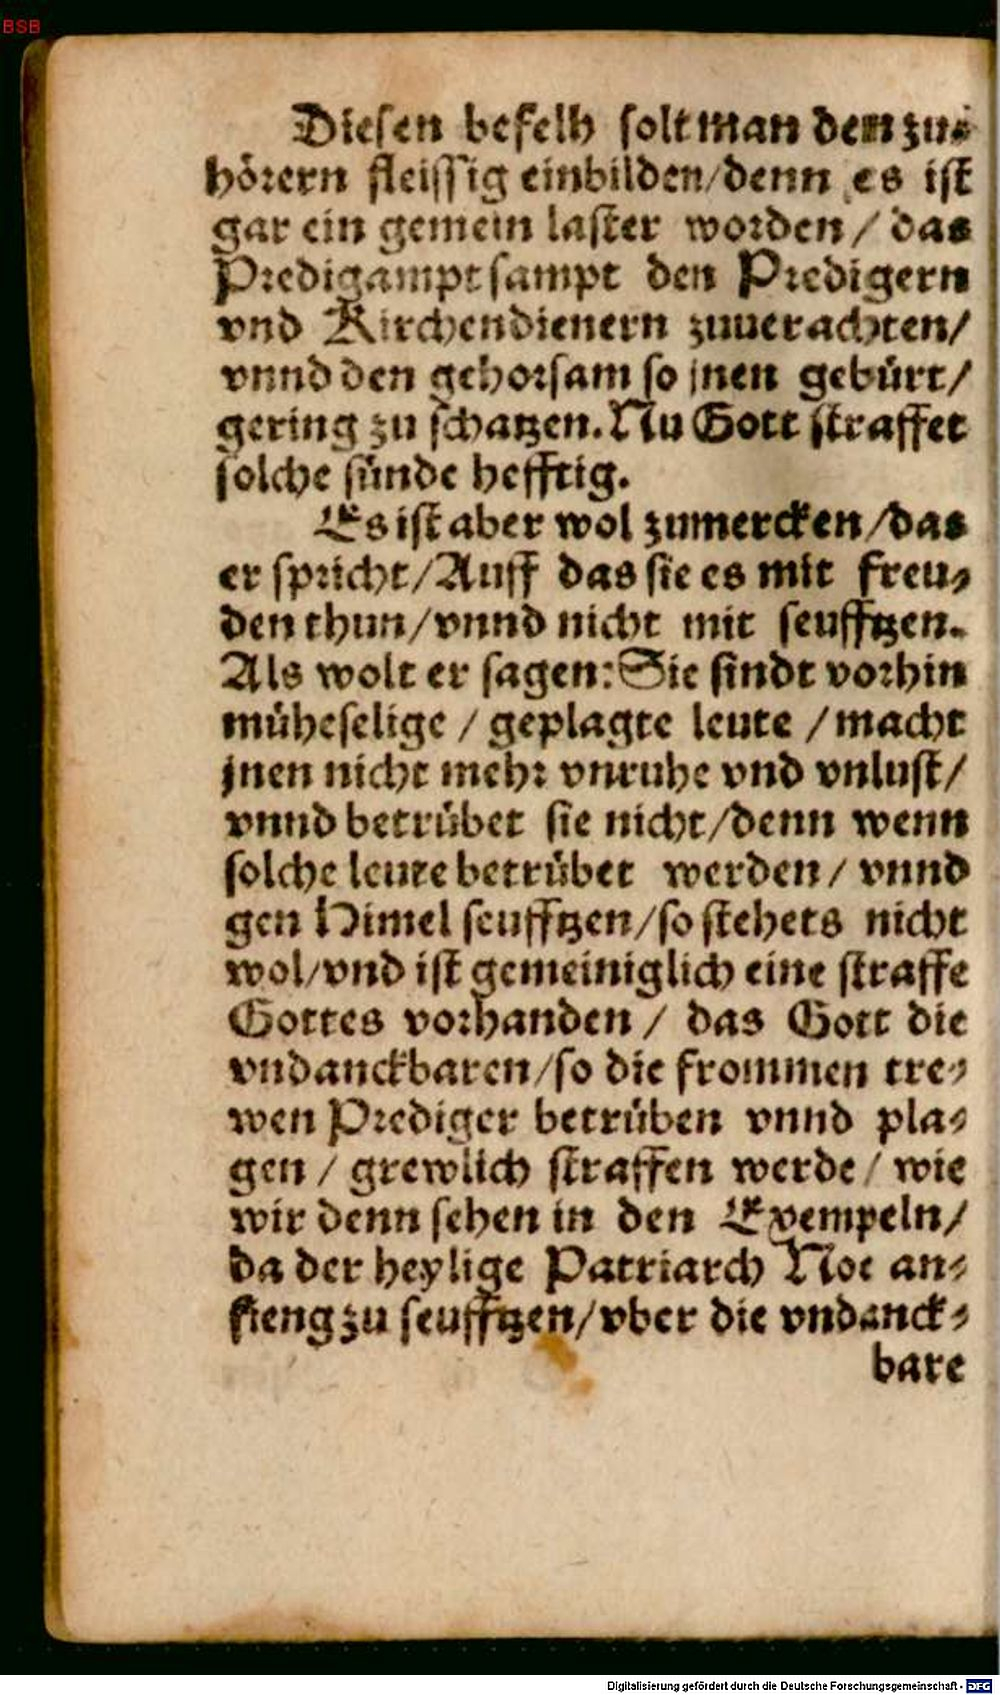 BSB
Diesen befelh solt man den zu⸗
hörern fleissig einbilden/denn es ist
gar ein gemein laster worden / das
Predigampt sampt den Predigern
vnd Kirchendienern zuuerachten/
vnnd den gehorsam so jnen gebürt/
gering zu schatzen. Nu Gott straffet
solche sünde hefftig.
Es ist aber wol zumercken/das
er spricht/Auff das sie es mit freu⸗
den thun/vnnd nicht mit seufftzen.
Als wolt er sagen: Sie sindt vorhin
müheselige / geplagte leute / macht
jnen nicht mehr vnruhe vnd vnlust/
vnnd betrübet sie nicht/denn wenn
solche leute betrübet werden / vnnd
gen Himel seufftzen/so stehets nicht
wol/vnd ist gemeiniglich eine straffe
Gottes vorhanden / das Gott die
vndanckbaren/so die frommen tre⸗
wen Prediger betrüben vnnd pla⸗
gen / grewlich straffen werde / wie
wir denn sehen in den Exempeln/
da der heylige Patriarch Noe an⸗
fieng zu seufftzen/vber die vndanck⸗
bare
Digitalisierung gefördert durch die Deutsche Forschungsgemeinschaft - DFG